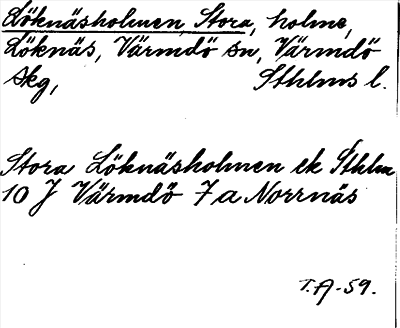 Löknäsholmen, Stora, holme,
Löknäs, Värmdö sn, Värmdö
skg, Sthlms l.
Stora Löknäsholmen ek Sthlm
10 J Värmdö 7a Norrnäs
T.A-59.